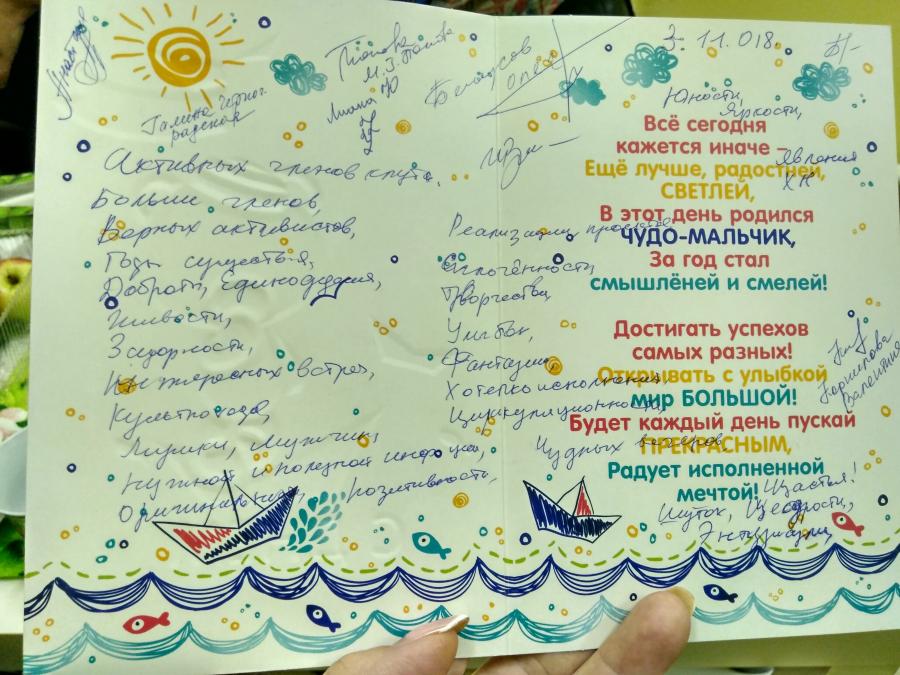 Галина
Попова
Белоусов
3.11.018.
Активных членов клуба.
Больше членов,
Верных активистов,
Годы существ-я,
Доброты, Единодушия,
Живости,
Задорности,
Интересных встреч,
Культпохода,
Лирики, Мужчин,
Нужной и полезной информации,
Оригинальности, Позитивности,
Реализации проектов
Сплочённости,
Творчества
Улыбок,
Фантазии
Хотеньяисполнения,
Циркуляционности,
Чудных вечеров,
Шуток, Щедрости,
Счастья!
Энтузиазма,
Юности,
Яркости,
Явления
Всё сегодня
кажется иначе –
Ещё лучше, радостней,
СВЕТЛЕЙ,
В этот день родился
ЧУДО-МАЛЬЧИК,
За год стал
смышлёней и смелей!
Достигать успехов
самых разных!
Открывать с улыбкой
мир БОЛЬШОЙ!
Будет каждый день пускай
ПРЕКРАСНЫМ,
Радует исполненной
мечтой!
Корнилова
Валентина